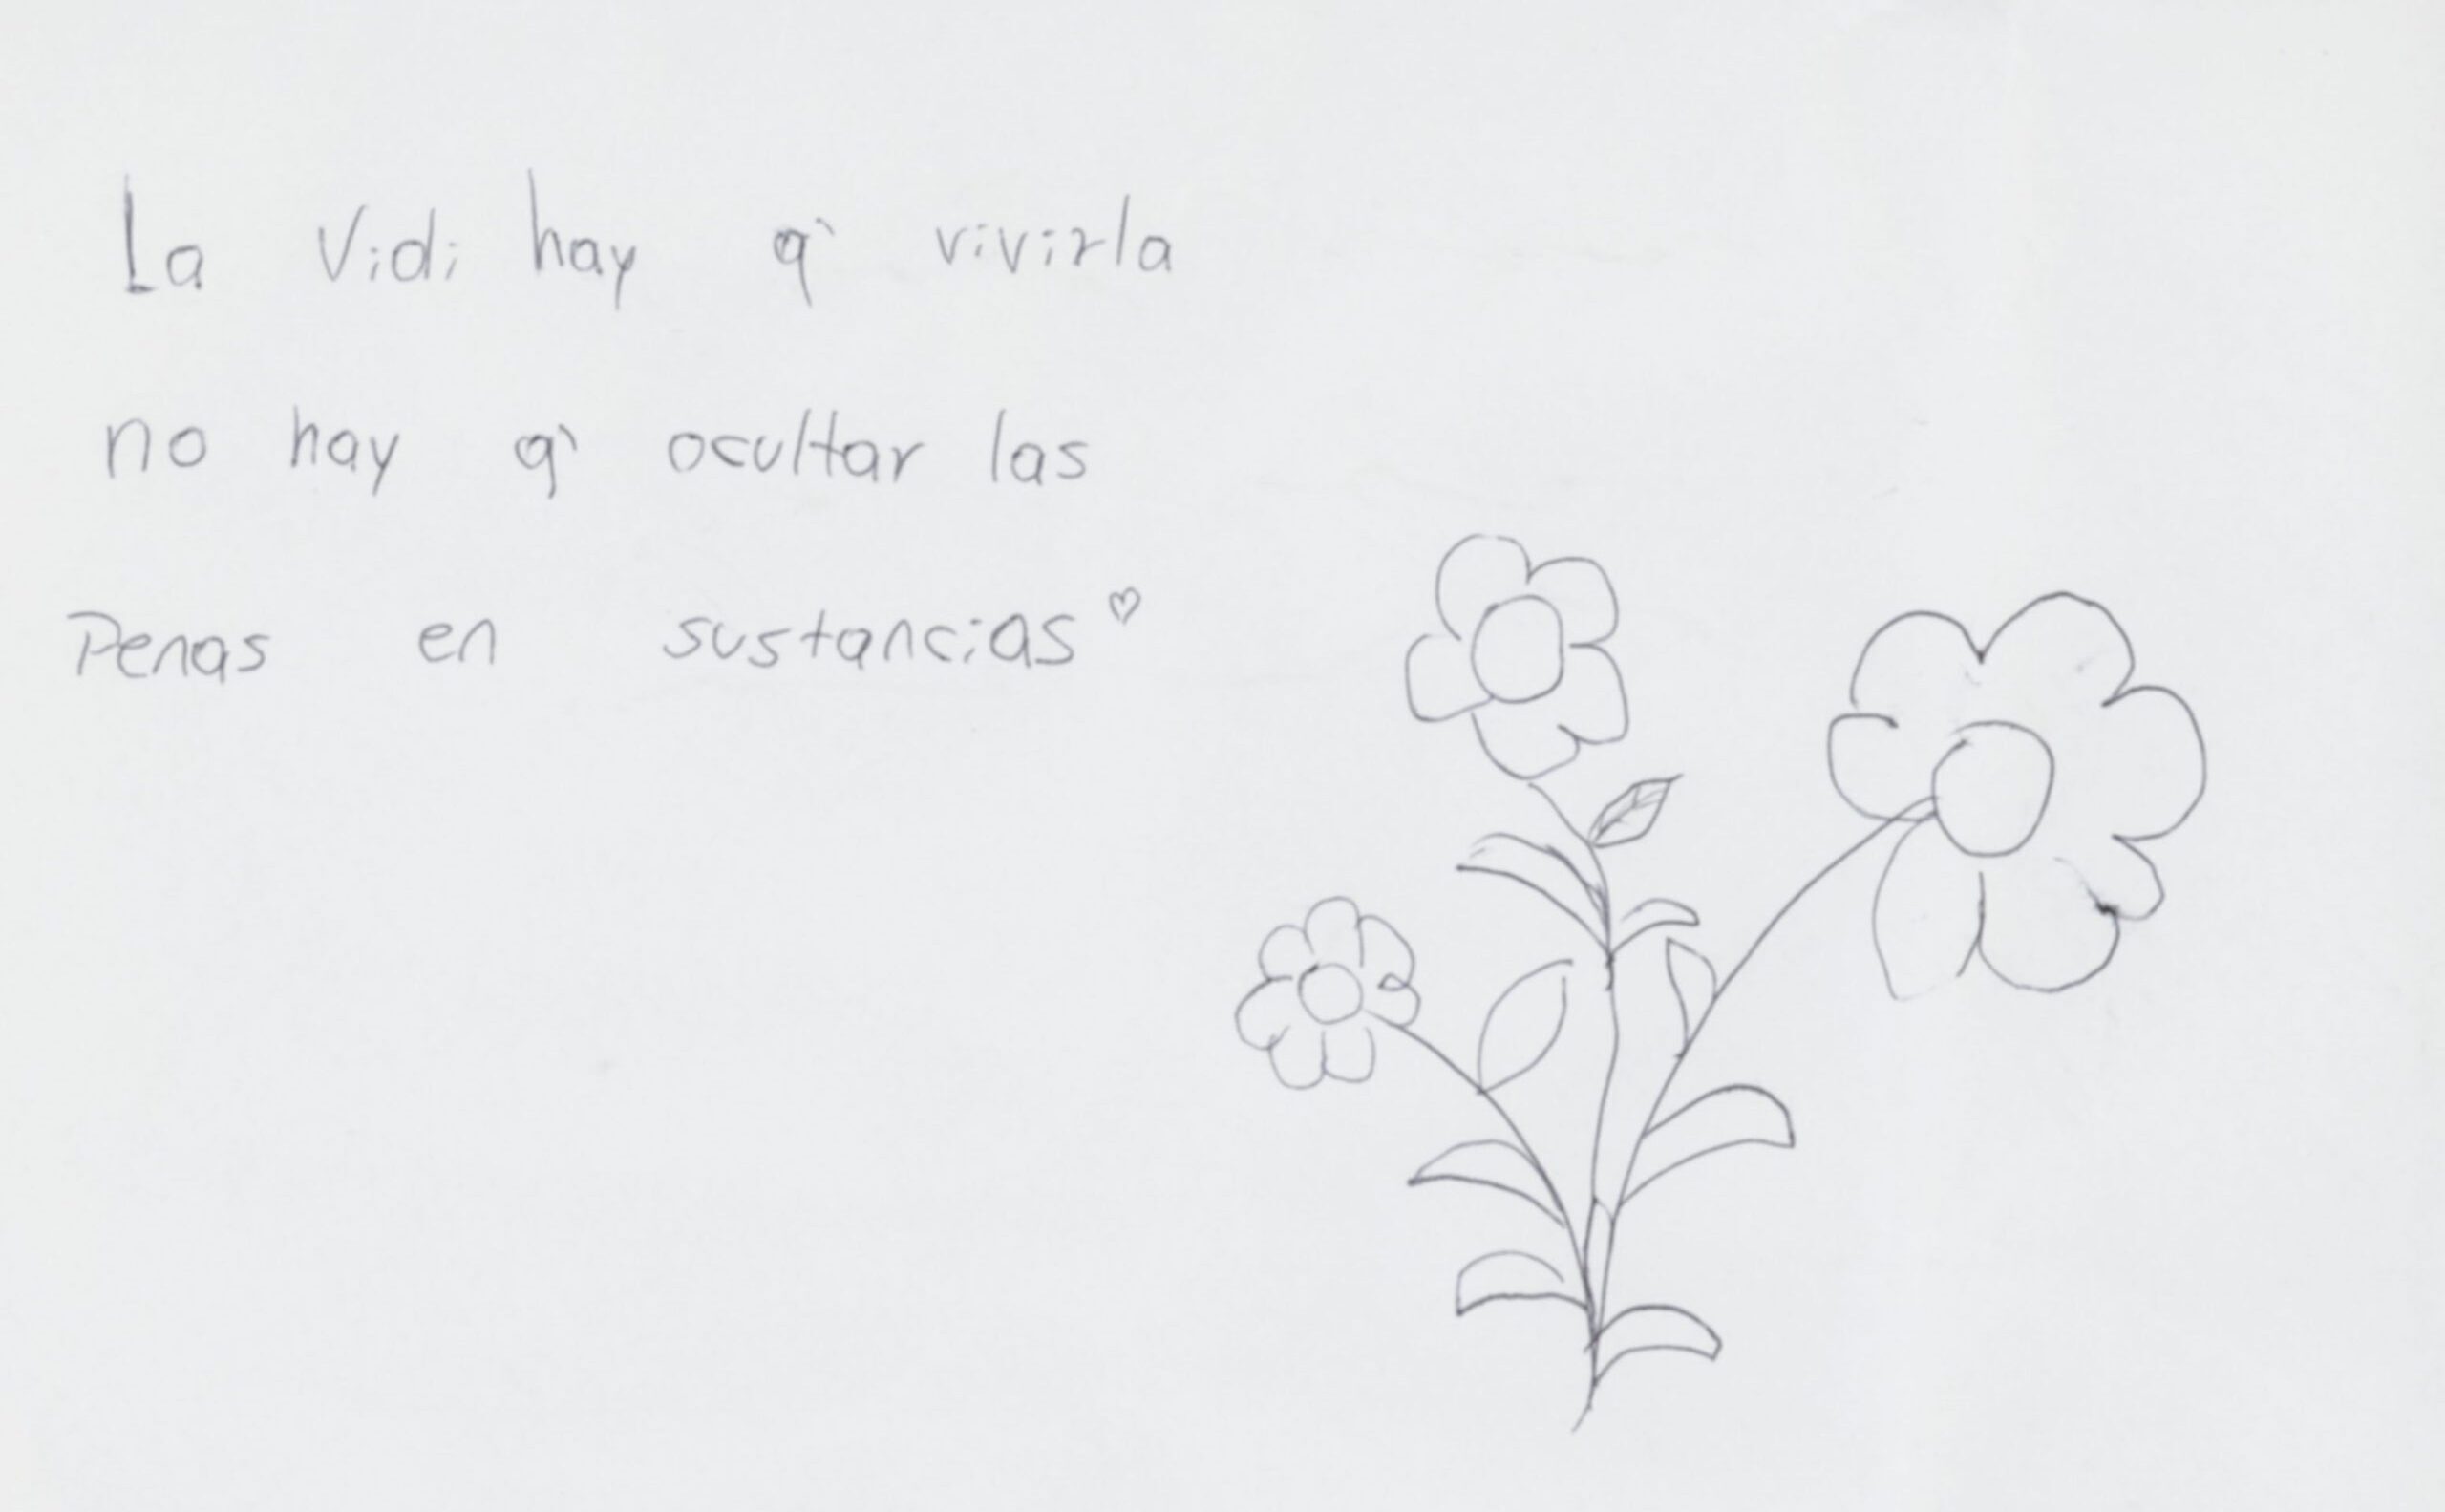 La Vidi hay q' vivirla
no hay q' ocultar las
Penas en sustancias ♡